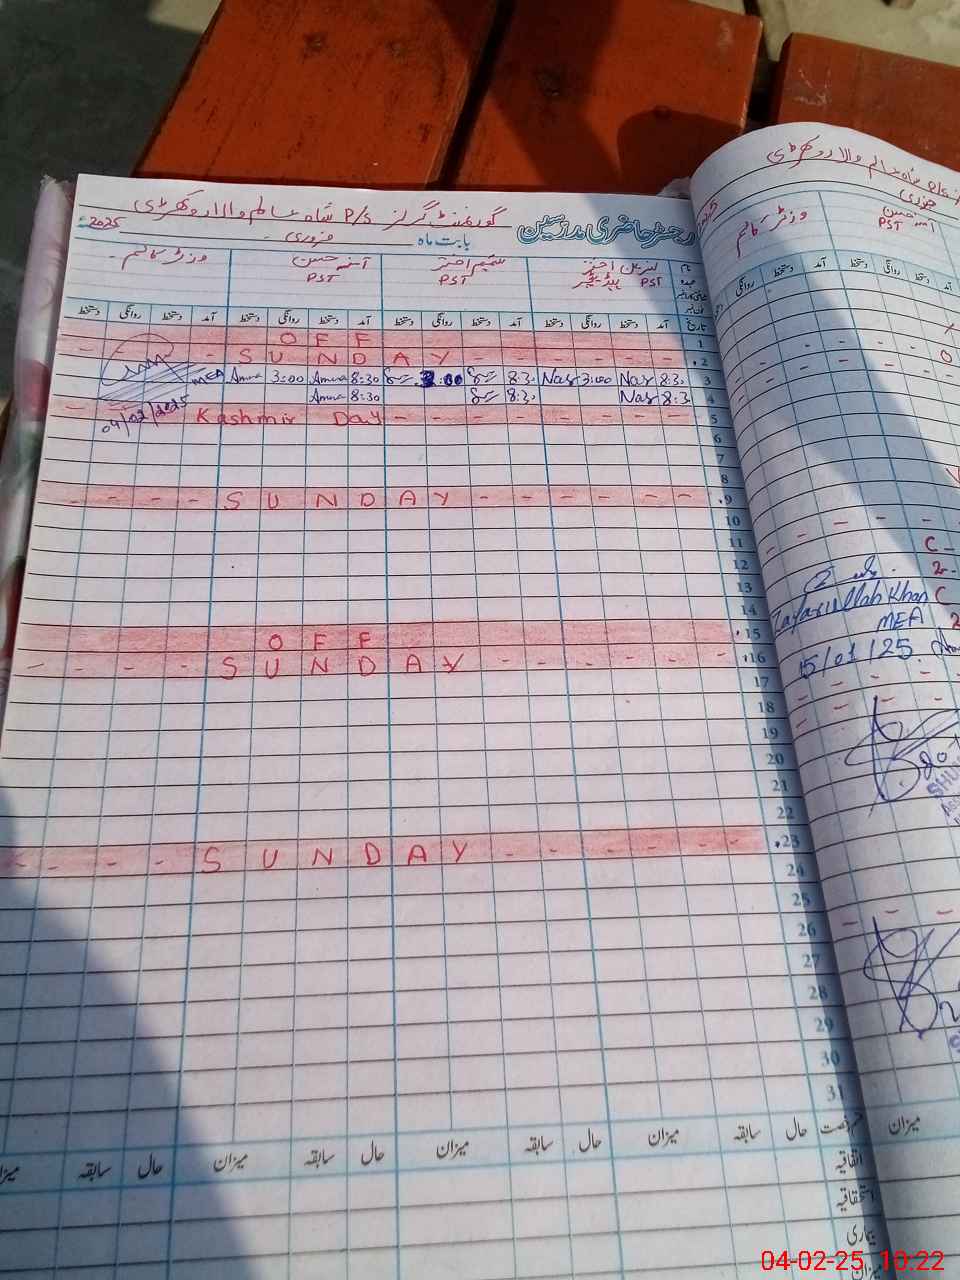 رجسٹر حاضری مدرسین
گورنمنٹ گرلز P/S شاہ عالم والا روکھڑی
بابت ماہ فروری 2025
نام نسرین اختر شمیم اختر آمنہ حسن وزٹر کالم
عہدہ PST ہیڈ ٹیچر PST PST
تاریخ آمد دستخط روانگی دستخط آمد دستخط روانگی دستخط آمد دستخط روانگی دستخط آمد دستخط روانگی دستخط
1 OFF
2 - - - - SUNDAY - - - - - -
3 8:30 Nas 3:00 Nas 8:30 3:00 8:30 Amna 3:00 Amna MEA
4 8:30 Nas 8:30 8:30 Amna
04/02/2025
5 Kashmir Day - - - - - - - -
6
7
8
9 - - - - SUNDAY - - - - - -
10
11
12
13
14
15 OFF
16 - - - - SUNDAY - - - - - - -
17
18
19
20
21
22
23 - - - - SUNDAY - - - - - - -
24
25
26
27
28
29
30
31
قسم رخصت حال سابقہ میزان حال سابقہ میزان حال سابقہ میزان حال سابقہ میزان
اتفاقیہ
استحقاقیہ
بیماری
میزان
جنوری
آمنہ حسن
PST
وزٹر کالم
آمد دستخط روانگی دستخط آمد دستخط روانگی
Zafarullah Khan
MEA
15/01/25
میزان
04-02-25 10:22